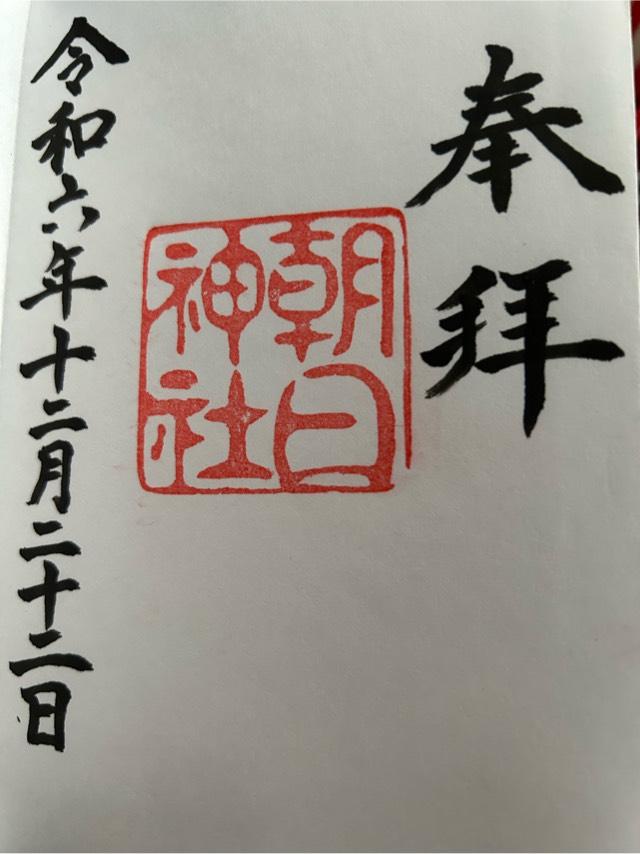 奉拝
朝日
神社
令和六年十二月二十二日